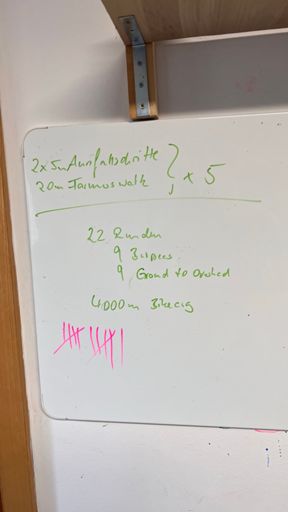 2 x 5m Ausfallschritte
20m Farmerswalk } x 5
22 Runden
9 Burpees
9 Ground to Overhead
4.000m Bikeerg